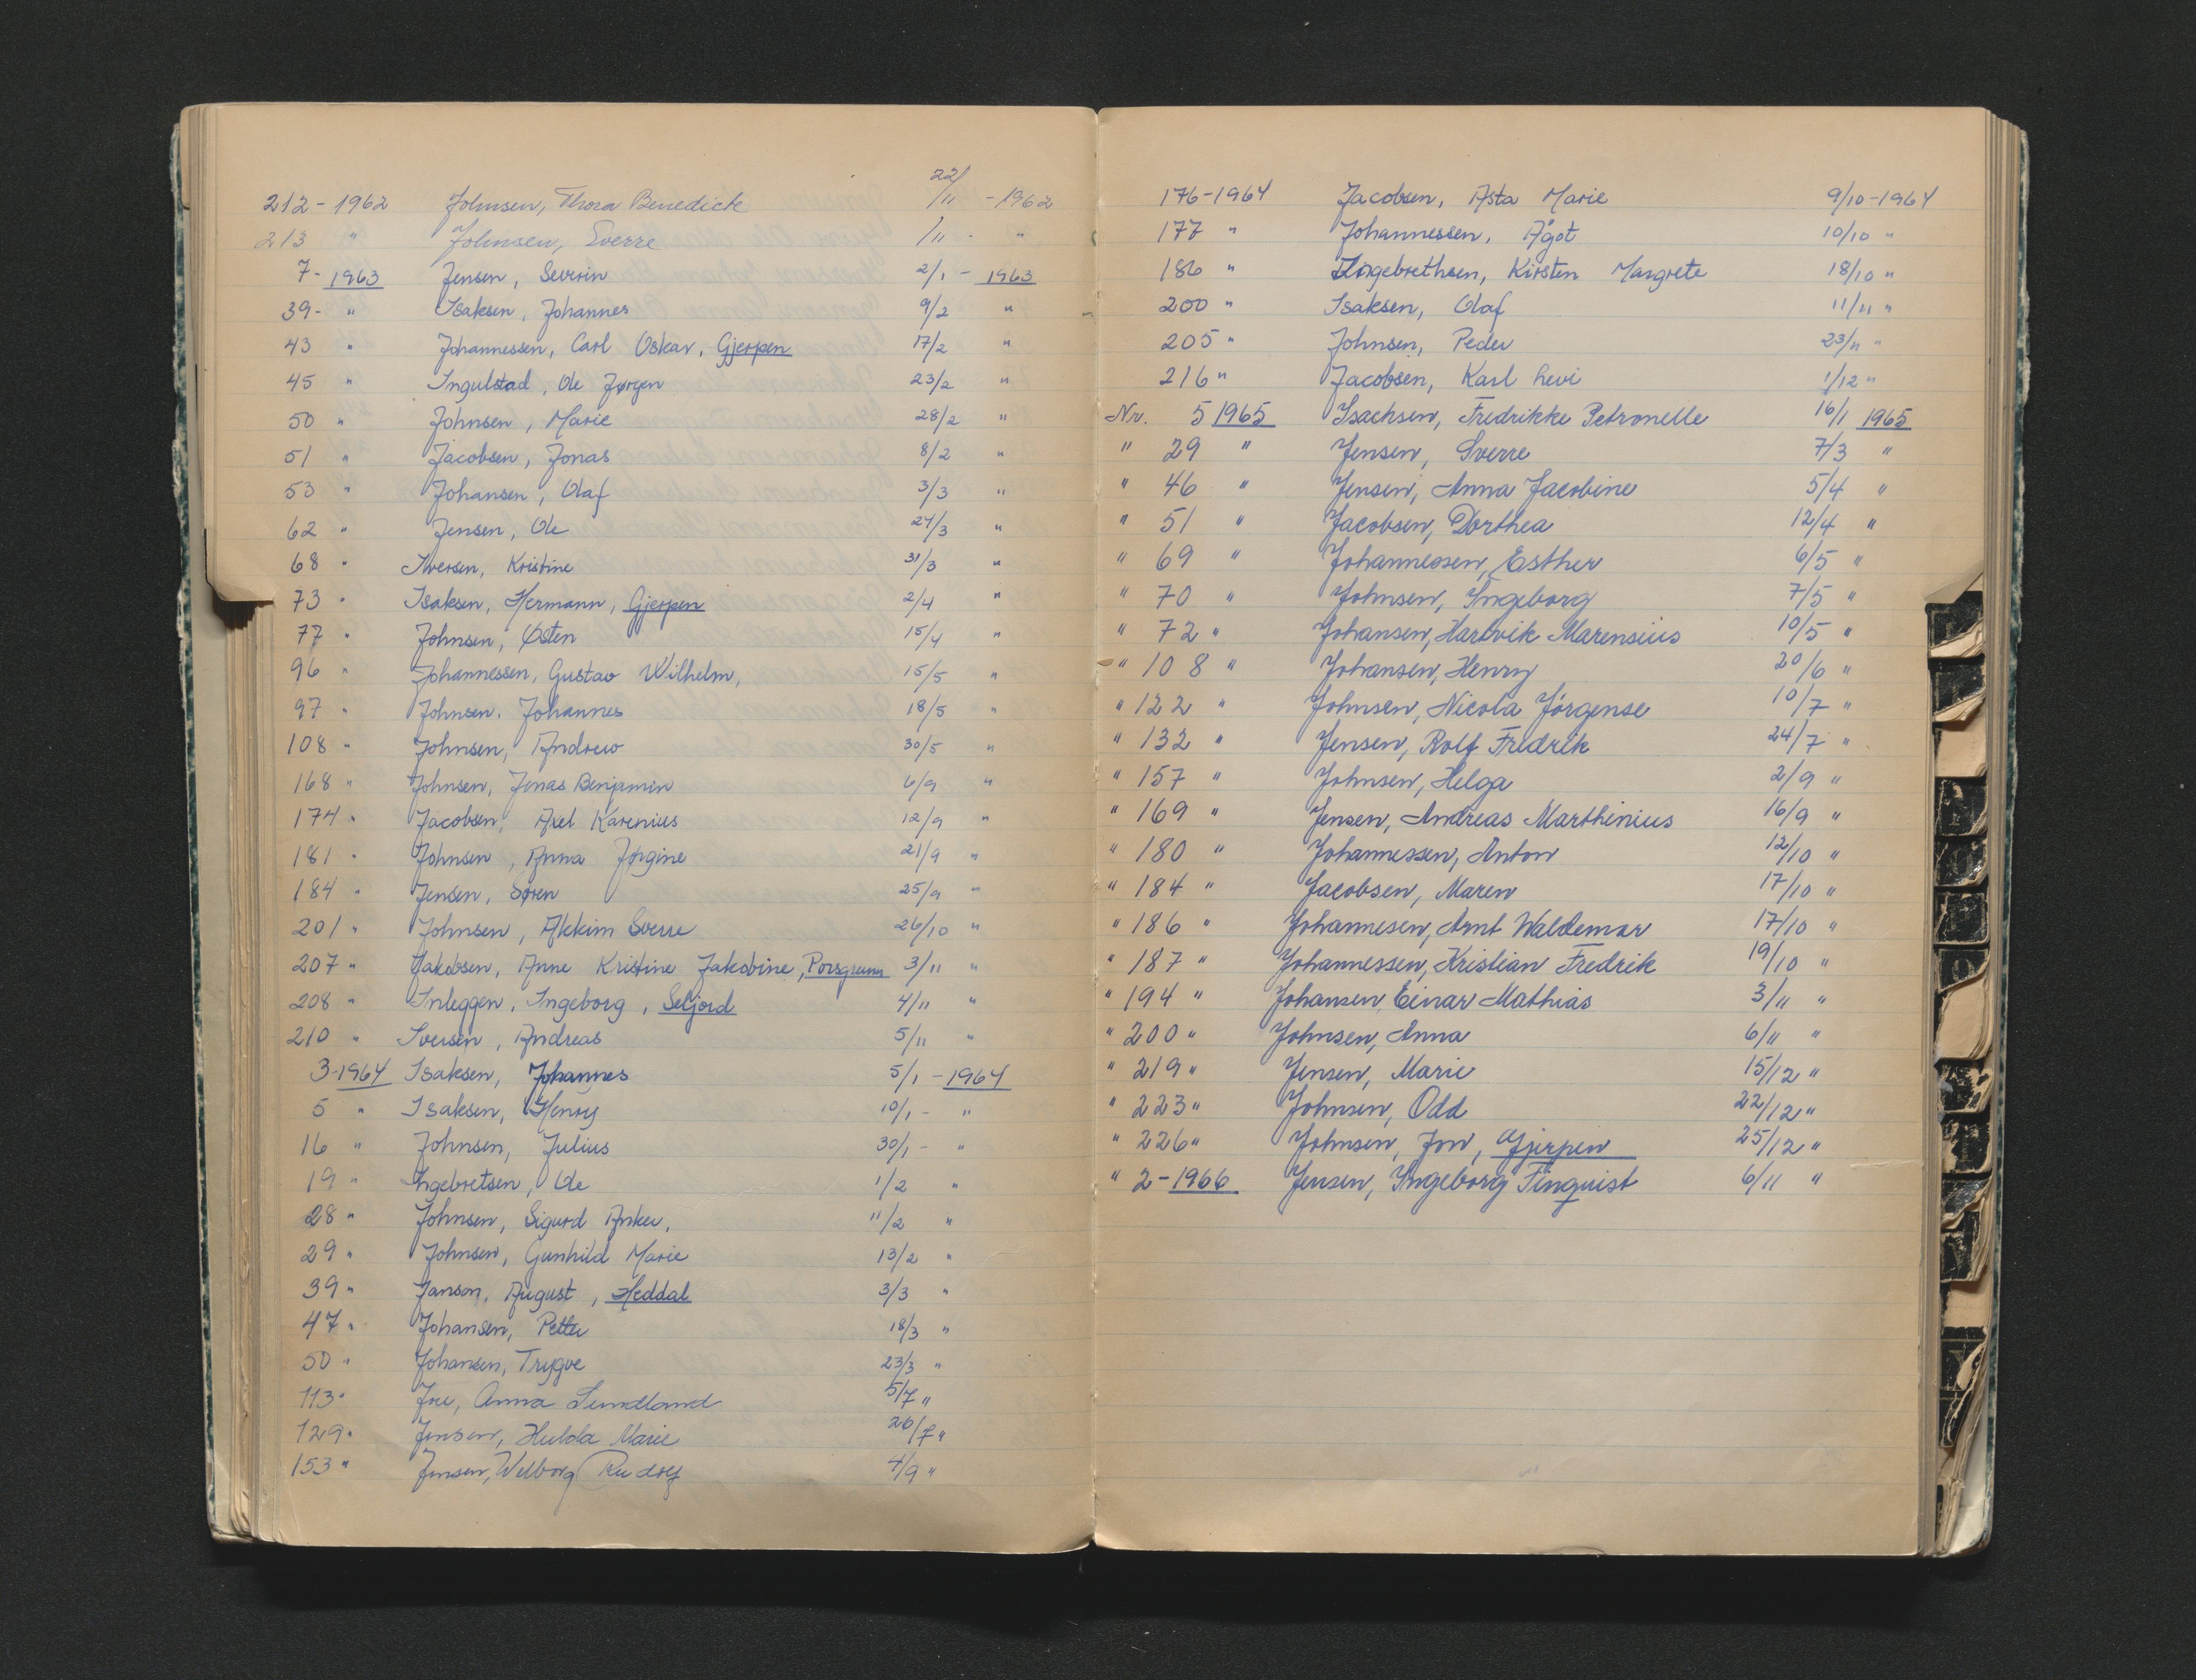 212 - 1962 Johnsen, Thora Benedick 22/11 - 1962
213 " Johnsen, Sverre /11 - "
7 - 1963 Jensen, Severin 2/1 - 1963
39 - " Isaksen, Johannes 9/2 "
43 " Johannessen, Carl Oskar, Gjerpen 17/2 "
45 " Ingulstad, Ole Jørgen 23/2 "
50 " Johnsen, Marie 28/2 "
51 " Jacobsen, Jonas 8/2 "
53 " Johansen, Olaf 3/3 "
62 " Jensen, Ole 24/3 "
68 " Iversen, Kristine 31/3 "
73 " Isaksen, Hermann, Gjerpen 2/4 "
77 " Johnsen, Østen 15/4 "
96 " Johannessen, Gustav Wilhelm, 15/5 "
97 " Johnsen, Johannes 18/5 "
108 " Johnsen, Andrew 30/5 "
168 " Johnsen, Jonas Benjamin 6/9 "
174 " Jacobsen, Axel Karenius 12/9 "
181 " Johnsen, Anna Jørgine 21/9 "
184 " Jensen, Søren 25/9 "
201 " Johnsen, Akkim Sverre 26/10 "
207 " Jakobsen, Anne Kristine Jakobine, Porsgrunn 3/11 "
208 " Inleggen, Ingeborg, Seljord 4/11 "
210 " Iversen, Andreas 5/11 "
3-1964 Isaksen, Johannes 5/1 - 1964
5 " Isaksen, Henry 10/1 - "
16 " Johnsen, Julius 30/1 - "
19 " Ingebretsen, Ole 1/2 "
28 " Johnsen, Sigurd Anker, 11/2 "
29 " Johnsen, Gunhild Marie 13/2 "
39 " Janson, August, Heddal 3/3 "
47 " Johansen, Petter 18/3 "
50 " Johansen, Trygve 23/3 "
113 " Jore, Anna Sundland 5/7 "
129 " Jensen, Hulda Marie 26/7 "
153 " Jensen, Welborg Rudolf 4/9 "
176-1964 Jacobsen, Asta Marie 9/10-1964
177 " Johannessen, Ågot 10/10 "
186 " Ingebrethsen, Kirsten Margrete 18/10 "
200 " Isaksen, Olaf 11/11 "
205 " Johnsen, Peder 23/11 "
216 " Jacobsen, Karl Levi 1/12 "
Nr. 5 1965 Isachsen, Fredrikke Petronelle 16/1 1965
" 29 " Jensen, Sverre 7/3 "
" 46 " Jensen, Anna Jacobine 5/4 "
" 51 " Jacobsen, Dorthea 12/4 "
" 69 " Johannessen, Esther 6/5 "
" 70 " Johnsen, Ingeborg 7/5 "
" 72 " Johansen, Hartvik Marensius 10/5 "
" 108 " Johansen, Henry 20/6 "
" 122 " Johnsen, Nicola Jörgense 10/7 "
" 132 " Jensen, Rolf Fredrik 24/7 "
" 157 " Johnsen, Helga 2/9 "
" 169 " Jensen, Andreas Marthinius 16/9 "
" 180 " Johannessen, Anton 12/10 "
" 184 " Jacobsen, Maren 17/10 "
" 186 " Johannesen, Arnt Waldemar 17/10 "
" 187 " Johannessen, Kristian Fredrik 19/10 "
" 194 " Johansen, Einar Mathias 3/11 "
" 200 " Johnsen, Anna 6/11 "
" 219 " Jensen, Marie 15/12 "
" 223 " Johnsen, Odd 22/12 "
" 226 " Johnsen, Jon, Gjerpen 25/12 "
" 2-1966 Jensen, Ingeborg Finquist 6/11 "